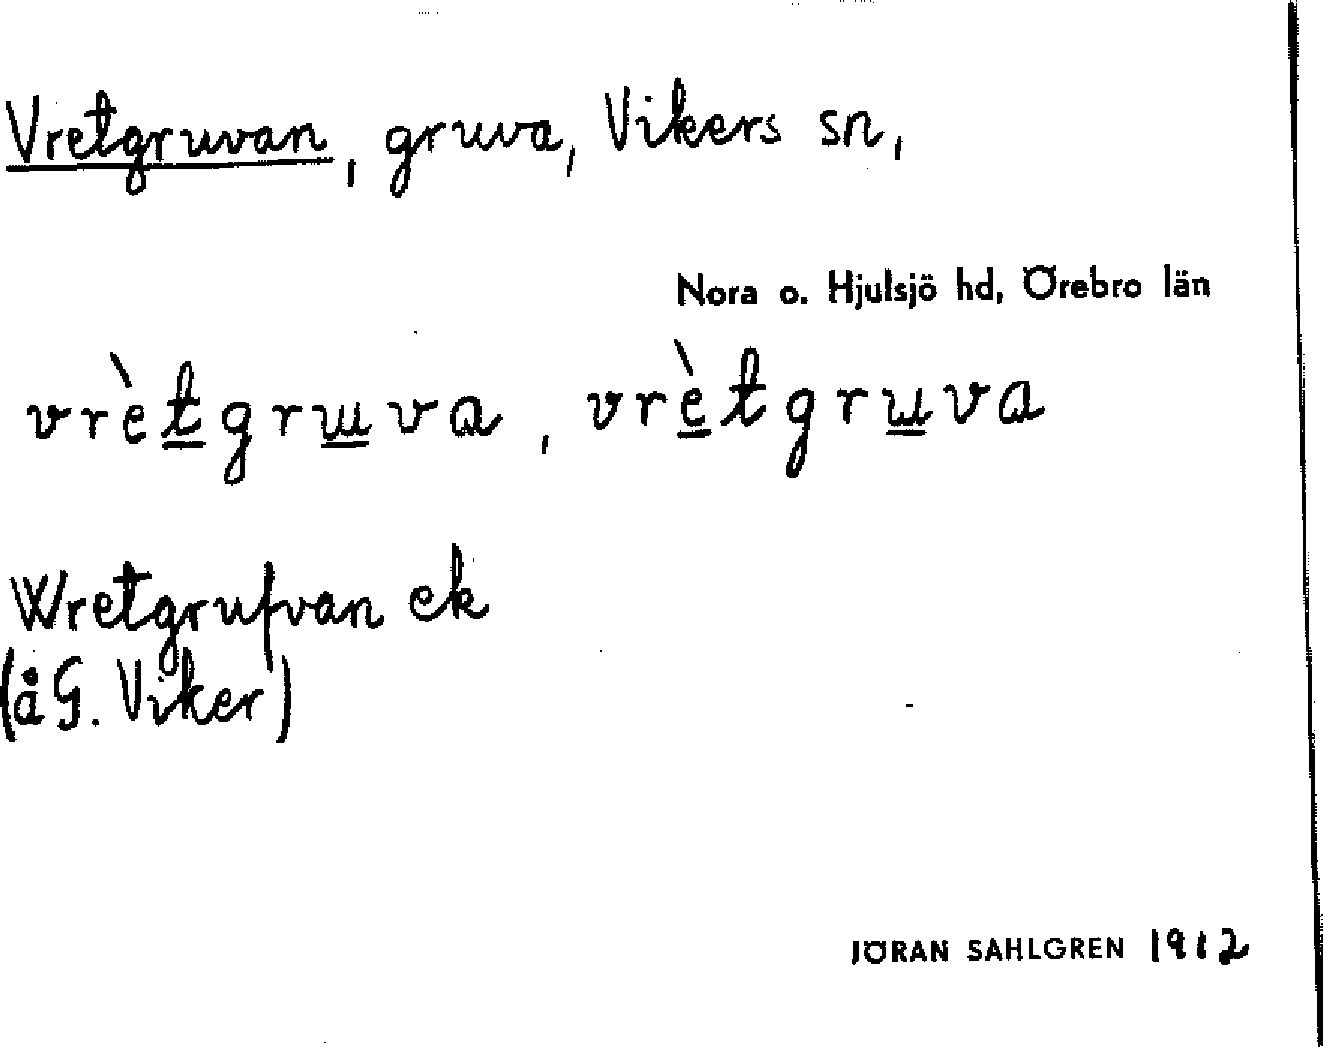 Vretgruvan, gruva, Vikers sn,
Nora o. Hjulsjö hd, Örebro län
vrètgruva, vrètgruva
Wretgrufvan ek
(å G. Viker)
JÖRAN SAHLGREN 1912